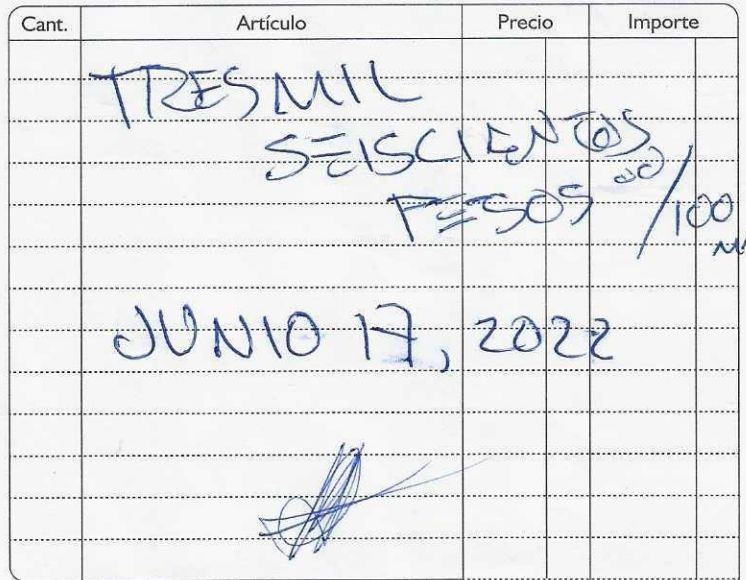 Cant. Artículo Precio Importe
TRES MIL
SEISCIENTOS
PESOS 00/100
JUNIO 17, 2022